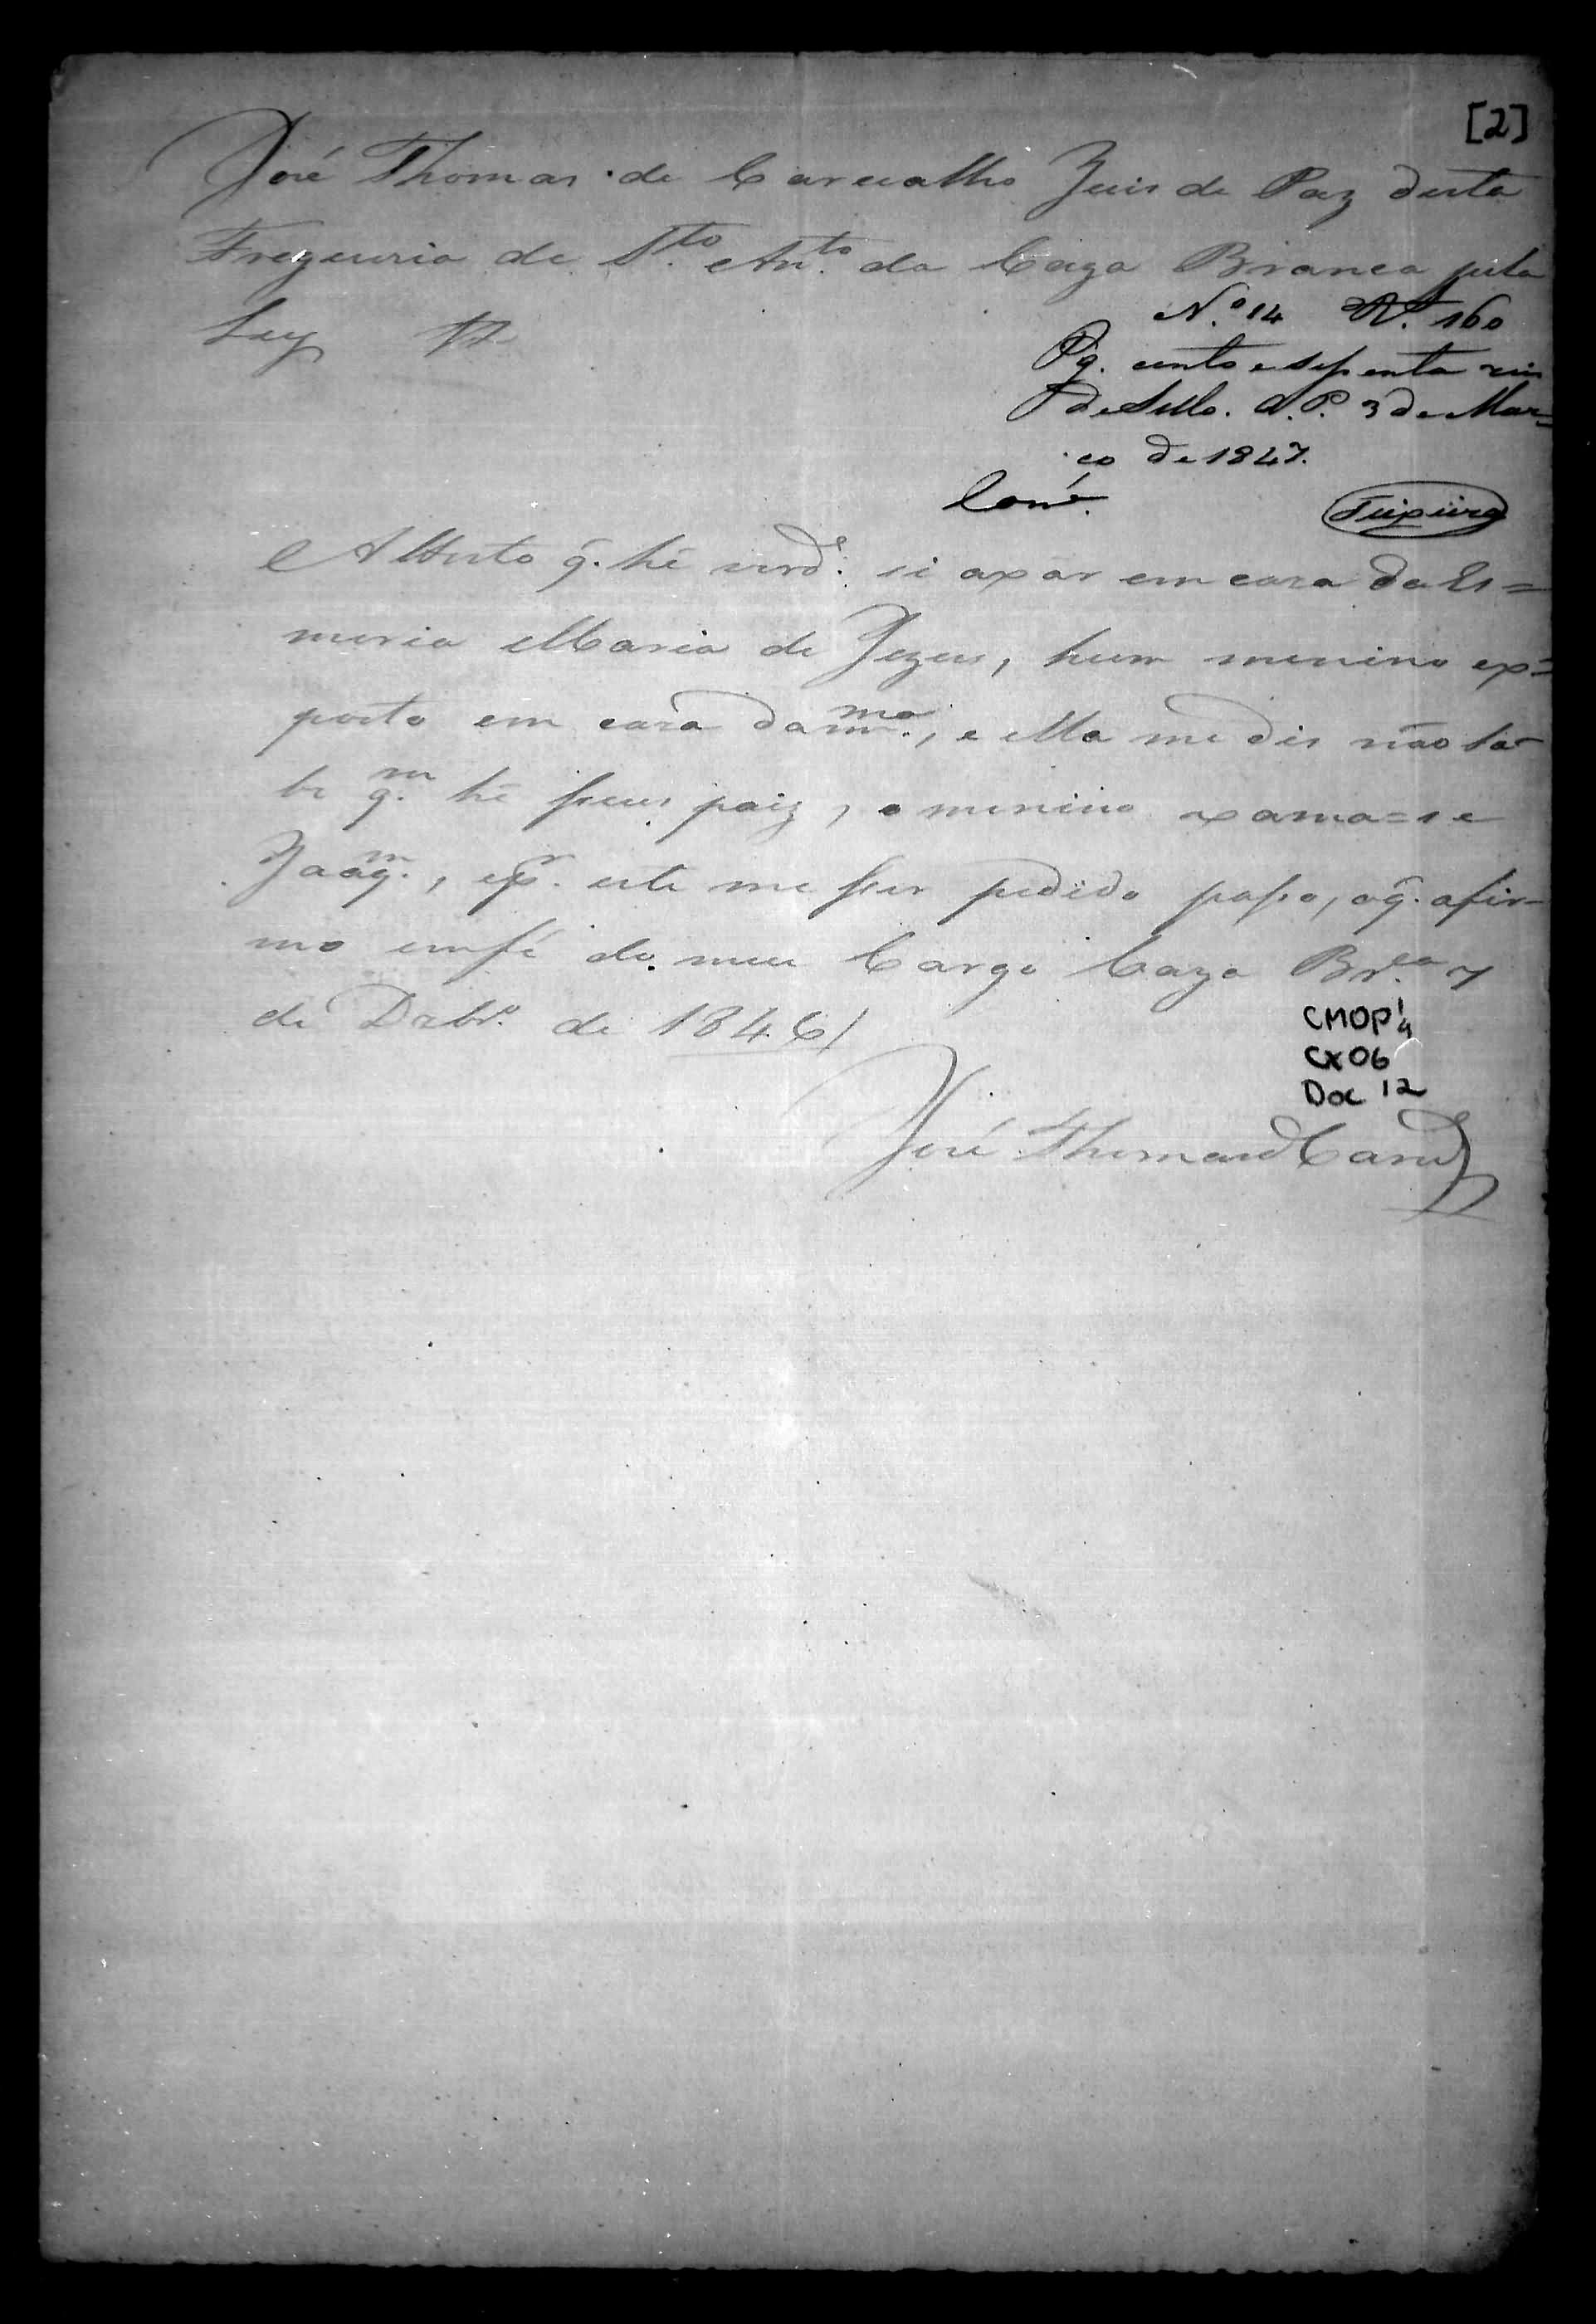 [2]
José Thomas de Carvalho Juis de Paz desta
Freguesia de S.to Ant.o da Caza Branca pela
Ley &
N.o 14 R.s 160
Pg. cento e sesenta reis
de Sello. O. P. 3 de Mar=
ço de 1847.
Teixeira
Attesto q. hé verd.e si axar em caza de Es=
meria Maria de Jezus, hum menino ex=
posto em caza da m.ma, e ella me dis não sa=
be q.m hé seus paiz, o menino xama=se
Joaq.m, e p.r este me ser pedido passo, o q. afir=
mo em fé do meu Cargo Caza Br.ca 7
de Dzbr.o de 1846/
CMOP
CX 06
Doc 12
José Thomas de Carv.o